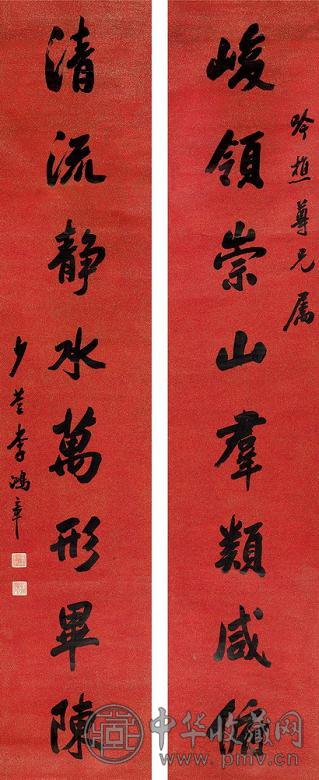 吟樵尊兄屬
峻領崇山羣類咸脩
清流静水萬形畢陳
少荃李鴻章
中华收藏网
www.pmv.cn